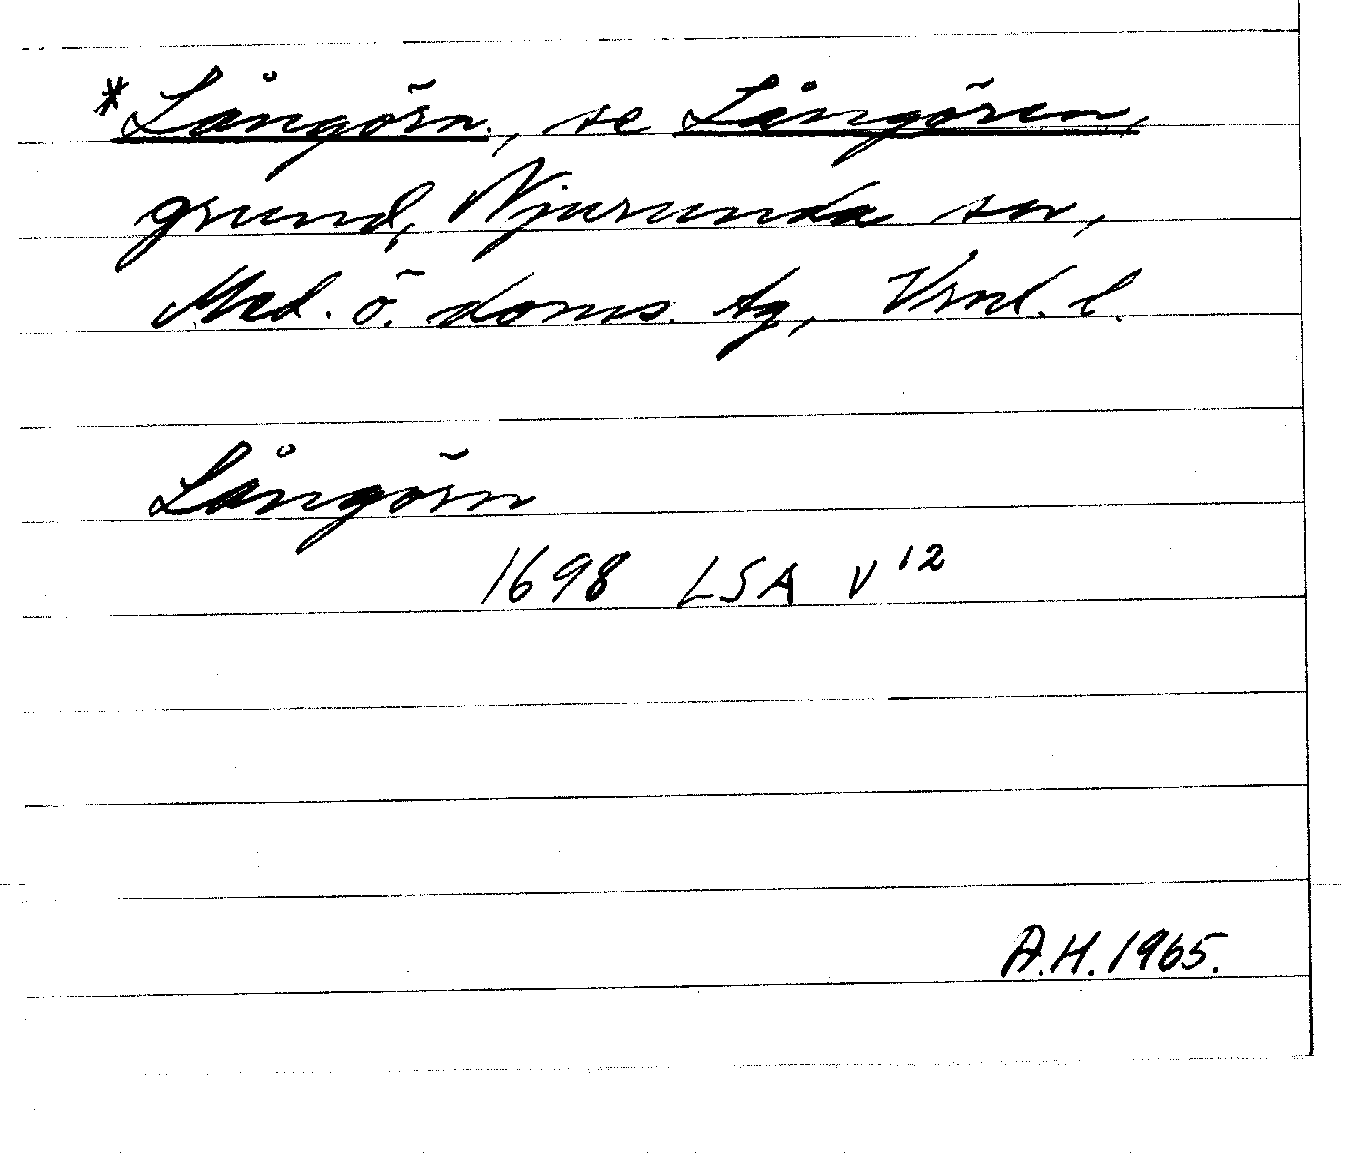 *Långörn, se Långören,
grund, Njurunda sn,
Med. ö. doms. tg, Vrnl. l.
Långörn
1698 LSA V¹²
A.H. 1965.